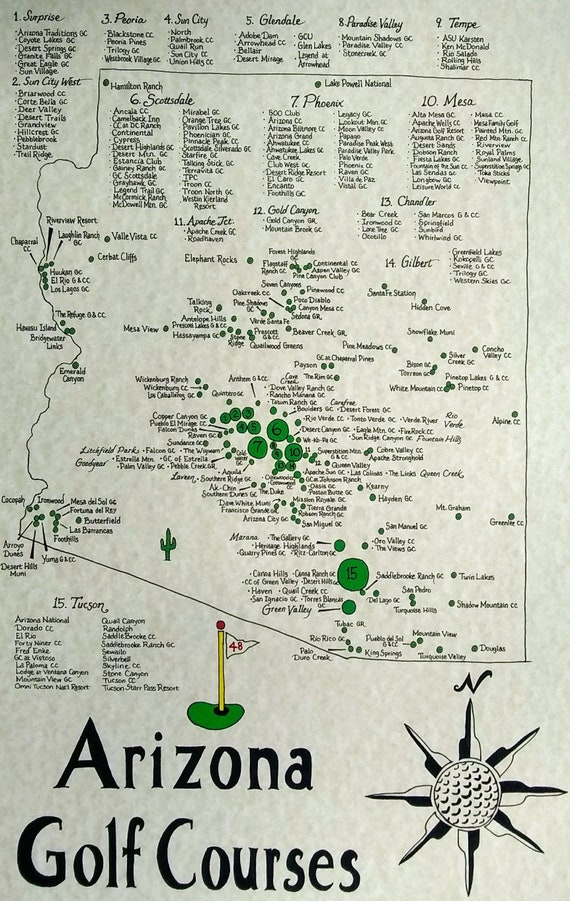 1. Surprise
Arizona Traditions GC
Coyote Lakes GC
Desert Springs GC
Granite Falls GC
Great Eagle GC
Sun Village
2. Sun City West
Briarwood CC
Corte Bella GC
Deer Valley
Desert Trails
Grandview
Hillcrest GC
Pebblebrook
Stardust
Trail Ridge
3. Peoria
Blackstone CC
Peoria Pines
Trilogy GC
Westbrook Village GC
4. Sun City
North
Palmbrook CC
Quail Run
Sun City CC
Union Hills CC
5. Glendale
Adobe Dam
Arrowhead CC
Bellair
Desert Mirage
GCU
Glen Lakes
Legend at
Arrowhead
8. Paradise Valley
Mountain Shadows GC
Paradise Valley CC
Stonecreek GC
9. Tempe
ASU Karsten
Ken McDonald
Rio Salado
Rolling Hills
Shalimar CC
Hamilton Ranch
Lake Powell National
6. Scottsdale
Ancala CC
Camelback Inn
CC at DC Ranch
Continental
Cypress
Desert Highlands GC
Desert Mtn. GC
Estancia Club
Gainey Ranch GC
GC Scottsdale
Grayhawk GC
Legend Trail GC
McCormick Ranch
McDowell Mtn. GC
Mirabel GC
Orange Tree GC
Pavilion Lakes GC
Phoenician GC
Pinnacle Peak CC
Scottsdale Silverado GC
Starfire GC
Talking Stick GC
Terravita GC
TPC
Troon CC
Troon North GC
Westin Kierland
Resort
7. Phoenix
500 Club
Arizona CC
Arizona Biltmore CC
Arizona Grand
Ahwatukee CC
Ahwatukee Lakes GC
Cave Creek
Club West GC
Desert Ridge Resort
El Caro GC
Encanto
Foothills GC
Legacy GC
Lookout Mtn. GC
Moon Valley CC
Papago
Paradise Peak West
Paradise Valley Park
Palo Verde
Phoenix CC
Raven GC
Villa de Paz
Vistal GC
10. Mesa
Alta Mesa GC
Apache Wells CC
Arizona Golf Resort
Augusta Ranch GC
Desert Sands
Dobson Ranch
Fiesta Lakes GC
Fountain of the Sun CC
Las Sendas GC
Longbow GC
Leisure World CC
Mesa CC
Mesa Family Golf
Painted Mtn. GC
Red Mtn Ranch CC
Riverview
Royal Palms
Sunland Village
Superstition Springs GC
Toka Sticks
Viewpoint
11. Apache Jct.
Apache Creek GC
Roadhaven
12. Gold Canyon
Gold Canyon GR
Mountain Brook GC
13. Chandler
Bear Creek
Ironwood CC
Lone Tree GC
Ocotillo
San Marcos G & CC
Springfield
Sunbird
Whirlwind GC
14. Gilbert
Greenfield Lakes
Kokopelli GC
Seville G & CC
Trilogy GC
Western Skies GC
Riverview Resort
Laughlin Ranch GC
Chaparral CC
Valle Vista CC
Cerbat Cliffs
Huukan GC
El Rio G & CC
Los Lagos GC
The Refuge G & CC
Havasu Island
Bridgewater Links
Emerald Canyon
Elephant Rocks
Forest Highlands GC
Flagstaff Ranch GC
Continental CC
Aspen Valley GC
Pine Canyon Club
Seven Canyons
Oakcreek CC
Pinewood CC
Poco Diablo
Canyon Mesa CC
Sedona GR
Pine Shadows GC
Verde Santa Fe
Talking Rock
Antelope Hills
Prescott Lakes G & CC
Hassayampa GC
Stone Ridge
Prescott G & CC
Quailwood Greens
Beaver Creek GR
Mesa View
Santa Fe Station
Hidden Cove
Snowflake Muni
Pine Meadows CC
Silver Creek GC
Concho Valley CC
Bison GC
Torreon GC
White Mountain CC
Pinetop Lakes G & CC
Pinetop CC
GC at Chaparral Pines
Payson GC
The Rim GC
Wickenburg Ranch
Wickenburg CC
Los Caballeros GC
Anthem G & CC
Quintero GC
Cave Creek
Dove Valley Ranch GC
Rancho Mañana GC
Tatum Ranch GC
Carefree
Boulders GC · Desert Forest GC
Rio Verde CC · Tonto Verde GC · Verde River
Rio Verde
Desert Canyon GC · Eagle Mtn. GC · FireRock CC
We-Ko-Pa GC
Sun Ridge Canyon GC
Fountain Hills
Alpine CC
Copper Canyon GC
Pueblo El Mirage CC
Falcon Dunes
Raven GC
Sundance GC
Litchfield Park · Falcon GC · The Wigwam
Goodyear · Estrella Mtn. · GC of Estrella
Palm Valley GC · Pebble Creek GR
Superstition Mtn. G & CC
Cobre Valley CC
Apache Stronghold
Queen Valley
Apache Sun GC · Las Colinas · The Links
Queen Creek
Aguila
Southern Ridge GC
Laveen
GC at Johnson Ranch
Oasis GC
Poston Butte GC
Kearny
Hayden GC
Ak-Chin
Southern Dunes GC
The Duke
Dave White Muni
Francisco Grande GC
Mission Royale GC
Tierra Grande
Robson Ranch GC
Arizona City GC
San Miguel GC
San Manuel GC
Mt. Graham
Greenlee CC
Cocopah
Ironwood
Mesa del Sol GC
Fortuna del Rey
Butterfield
Las Barrancas
Foothills
Arroyo Dunes
Desert Hills Muni
Yuma G & CC
Marana · The Gallery GC
Heritage Highlands
Quarry Pines GC · Ritz-Carlton GC
Oro Valley CC
The Views GC
Canoa Hills · Canoa Ranch GC
CC of Green Valley · Desert Hills
Haven · Quail Creek CC
San Ignacio GC · Torres Blancas GC
Green Valley
Saddlebrooke Ranch GC
Twin Lakes
Del Lago GC
San Pedro
Turquoise Hills
Shadow Mountain CC
Tubac GR
Rio Rico GC
Palo Duro Creek
Kino Springs
Pueblo del Sol G & CC
Mountain View
Turquoise Valley
Douglas
1
2
3
4
5
6
7
10
11
12
13
14
15
15. Tucson
Arizona National
Dorado CC
El Rio
Forty Niner CC
Fred Enke
GC at Vistoso
La Paloma CC
Lodge at Ventana Canyon
Mountain View GC
Omni Tucson Nat'l Resort
Quail Canyon
Randolph
SaddleBrooke CC
Saddlebrooke Ranch GC
Sewailo
Silverbell
Skyline CC
Stone Canyon
Tucson CC
Tucson Starr Pass Resort
48
N
Arizona
Golf Courses